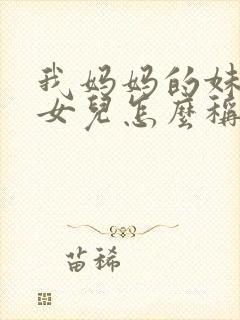 我妈妈的妹
女兒怎麼稱
苗稀